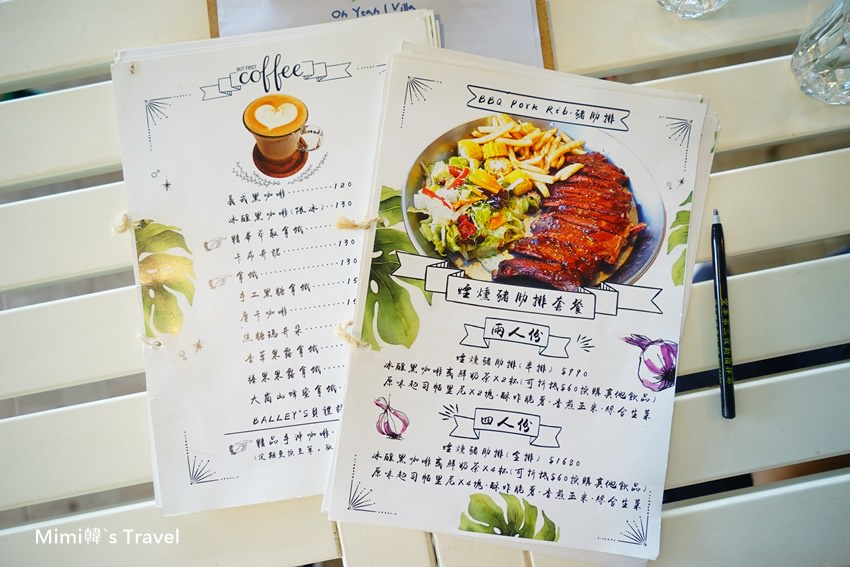 Oh Yeah! Villa
BUT FIRST
coffee
義式黑咖啡 120
冰釀黑咖啡(限冰) 130
精華萃取拿鐵 130
卡布奇諾 130
拿鐵 130
手工黑糖拿鐵
摩卡咖啡
焦糖瑪奇朵
香草果露拿鐵
榛果果露拿鐵
大崗山蜂蜜拿鐵
BALLEY'S貝禮
精品手沖咖啡
BBQ Pork Rib·豬肋排
煙燻豬肋排套餐
兩人份
煙燻豬肋排(半排) $990
冰釀黑咖啡或鮮奶茶X2杯(可折抵$60換購其他飲品)
原味起司帕里尼X2塊·酥炸脆薯·香煮玉米·綜合生菜
四人份
煙燻豬肋排(全排) $1680
冰釀黑咖啡或鮮奶茶X4杯(可折抵$60換購其他飲品)
原味起司帕里尼X4塊·酥炸脆薯·香煮玉米·綜合生菜
Mimi韓`s Travel